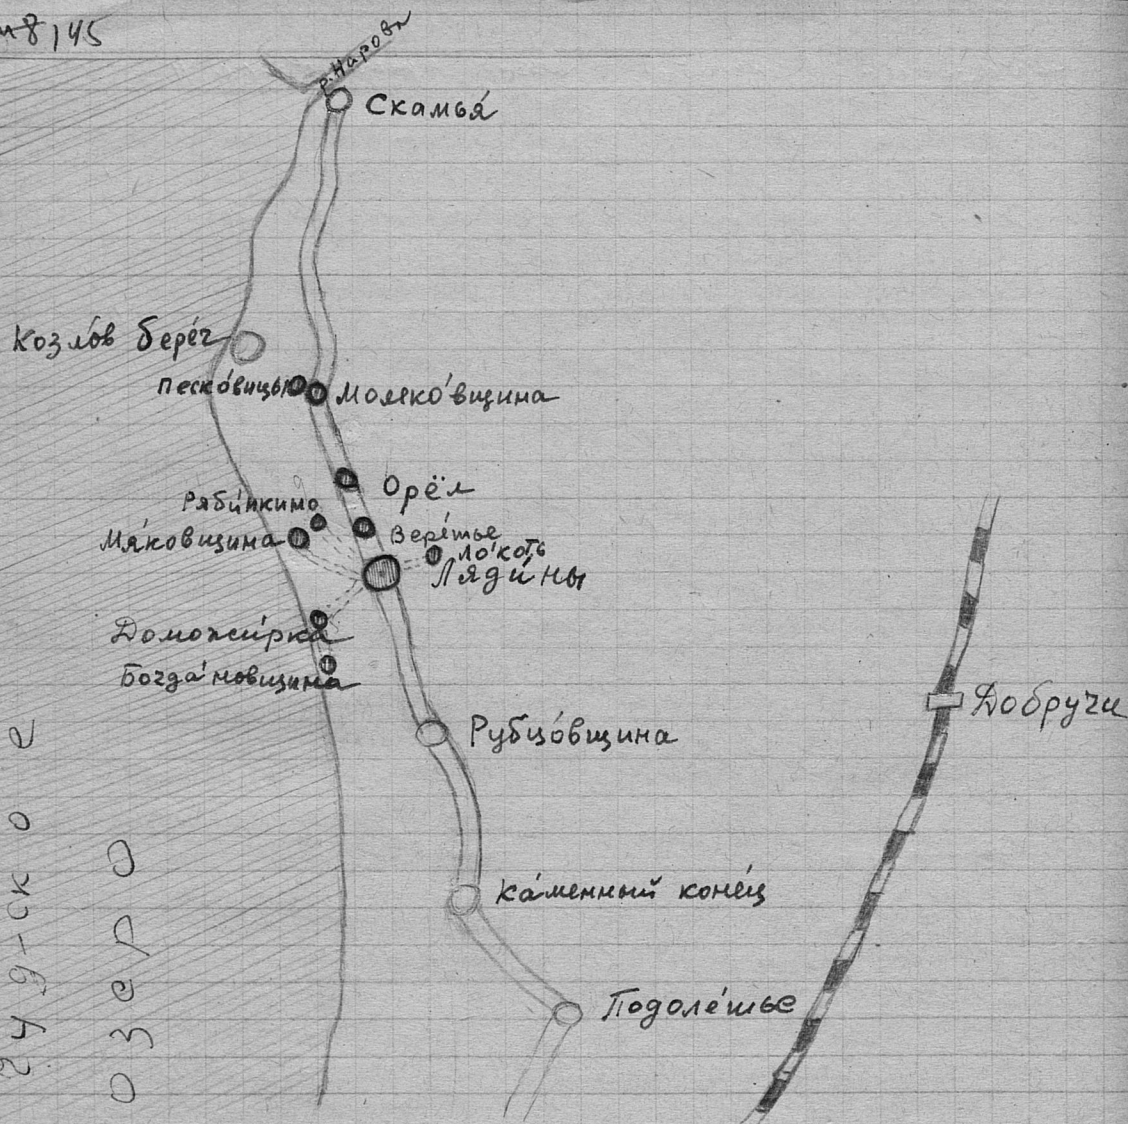 8145
р. Нарова
Скамья́
Козло́в бере́г
Песко́вицы
Моляко́вщина
Орёл
Ряби́нкино
Мя́ковщина
Вере́тье
Ло́коть
Ляди́ны
Доможи́рка
Богда́новщина
Добручи
Рубцо́вщина
Ка́менный коне́ц
Подоле́шье
Чуд-ское
озеро